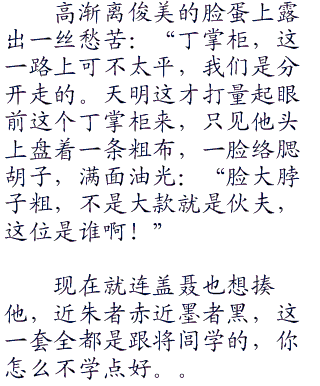 高渐离俊美的脸蛋上露
出一丝愁苦：“丁掌柜，这
一路上可不太平，我们是分
开走的。天明这才打量起眼
前这个丁掌柜来，只见他头
上盘着一条粗布，一脸络腮
胡子，满面油光：“脸大脖
子粗，不是大款就是伙夫，
这位是谁啊！”
现在就连盖聂也想揍
他，近朱者赤近墨者黑，这
一套全都是跟将闾学的，你
怎么不学点好。。